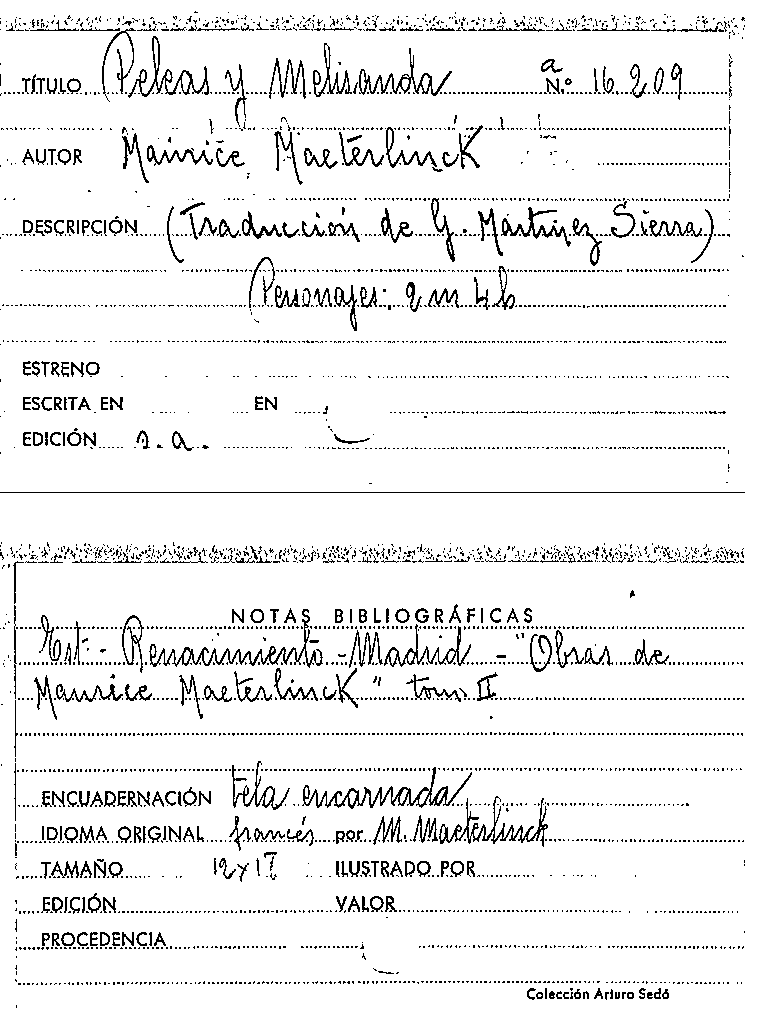 TÍTULO Peleas y Melisanda a N.º 16.209
AUTOR Maurice Maeterlinck
DESCRIPCIÓN (Traducción de G. Martínez Sierra)
Personajes: 9 m 4 h
ESTRENO
ESCRITA EN EN
EDICIÓN s.a.
NOTAS BIBLIOGRÁFICAS
Est.- Renacimiento - Madrid - "Obras de
Maurice Maeterlinck" tomo II
ENCUADERNACIÓN tela encarnada
IDIOMA ORIGINAL francés por M. Maeterlinck
TAMAÑO 12 x 17 ILUSTRADO POR
EDICIÓN VALOR
PROCEDENCIA
Colección Arturo Sedó